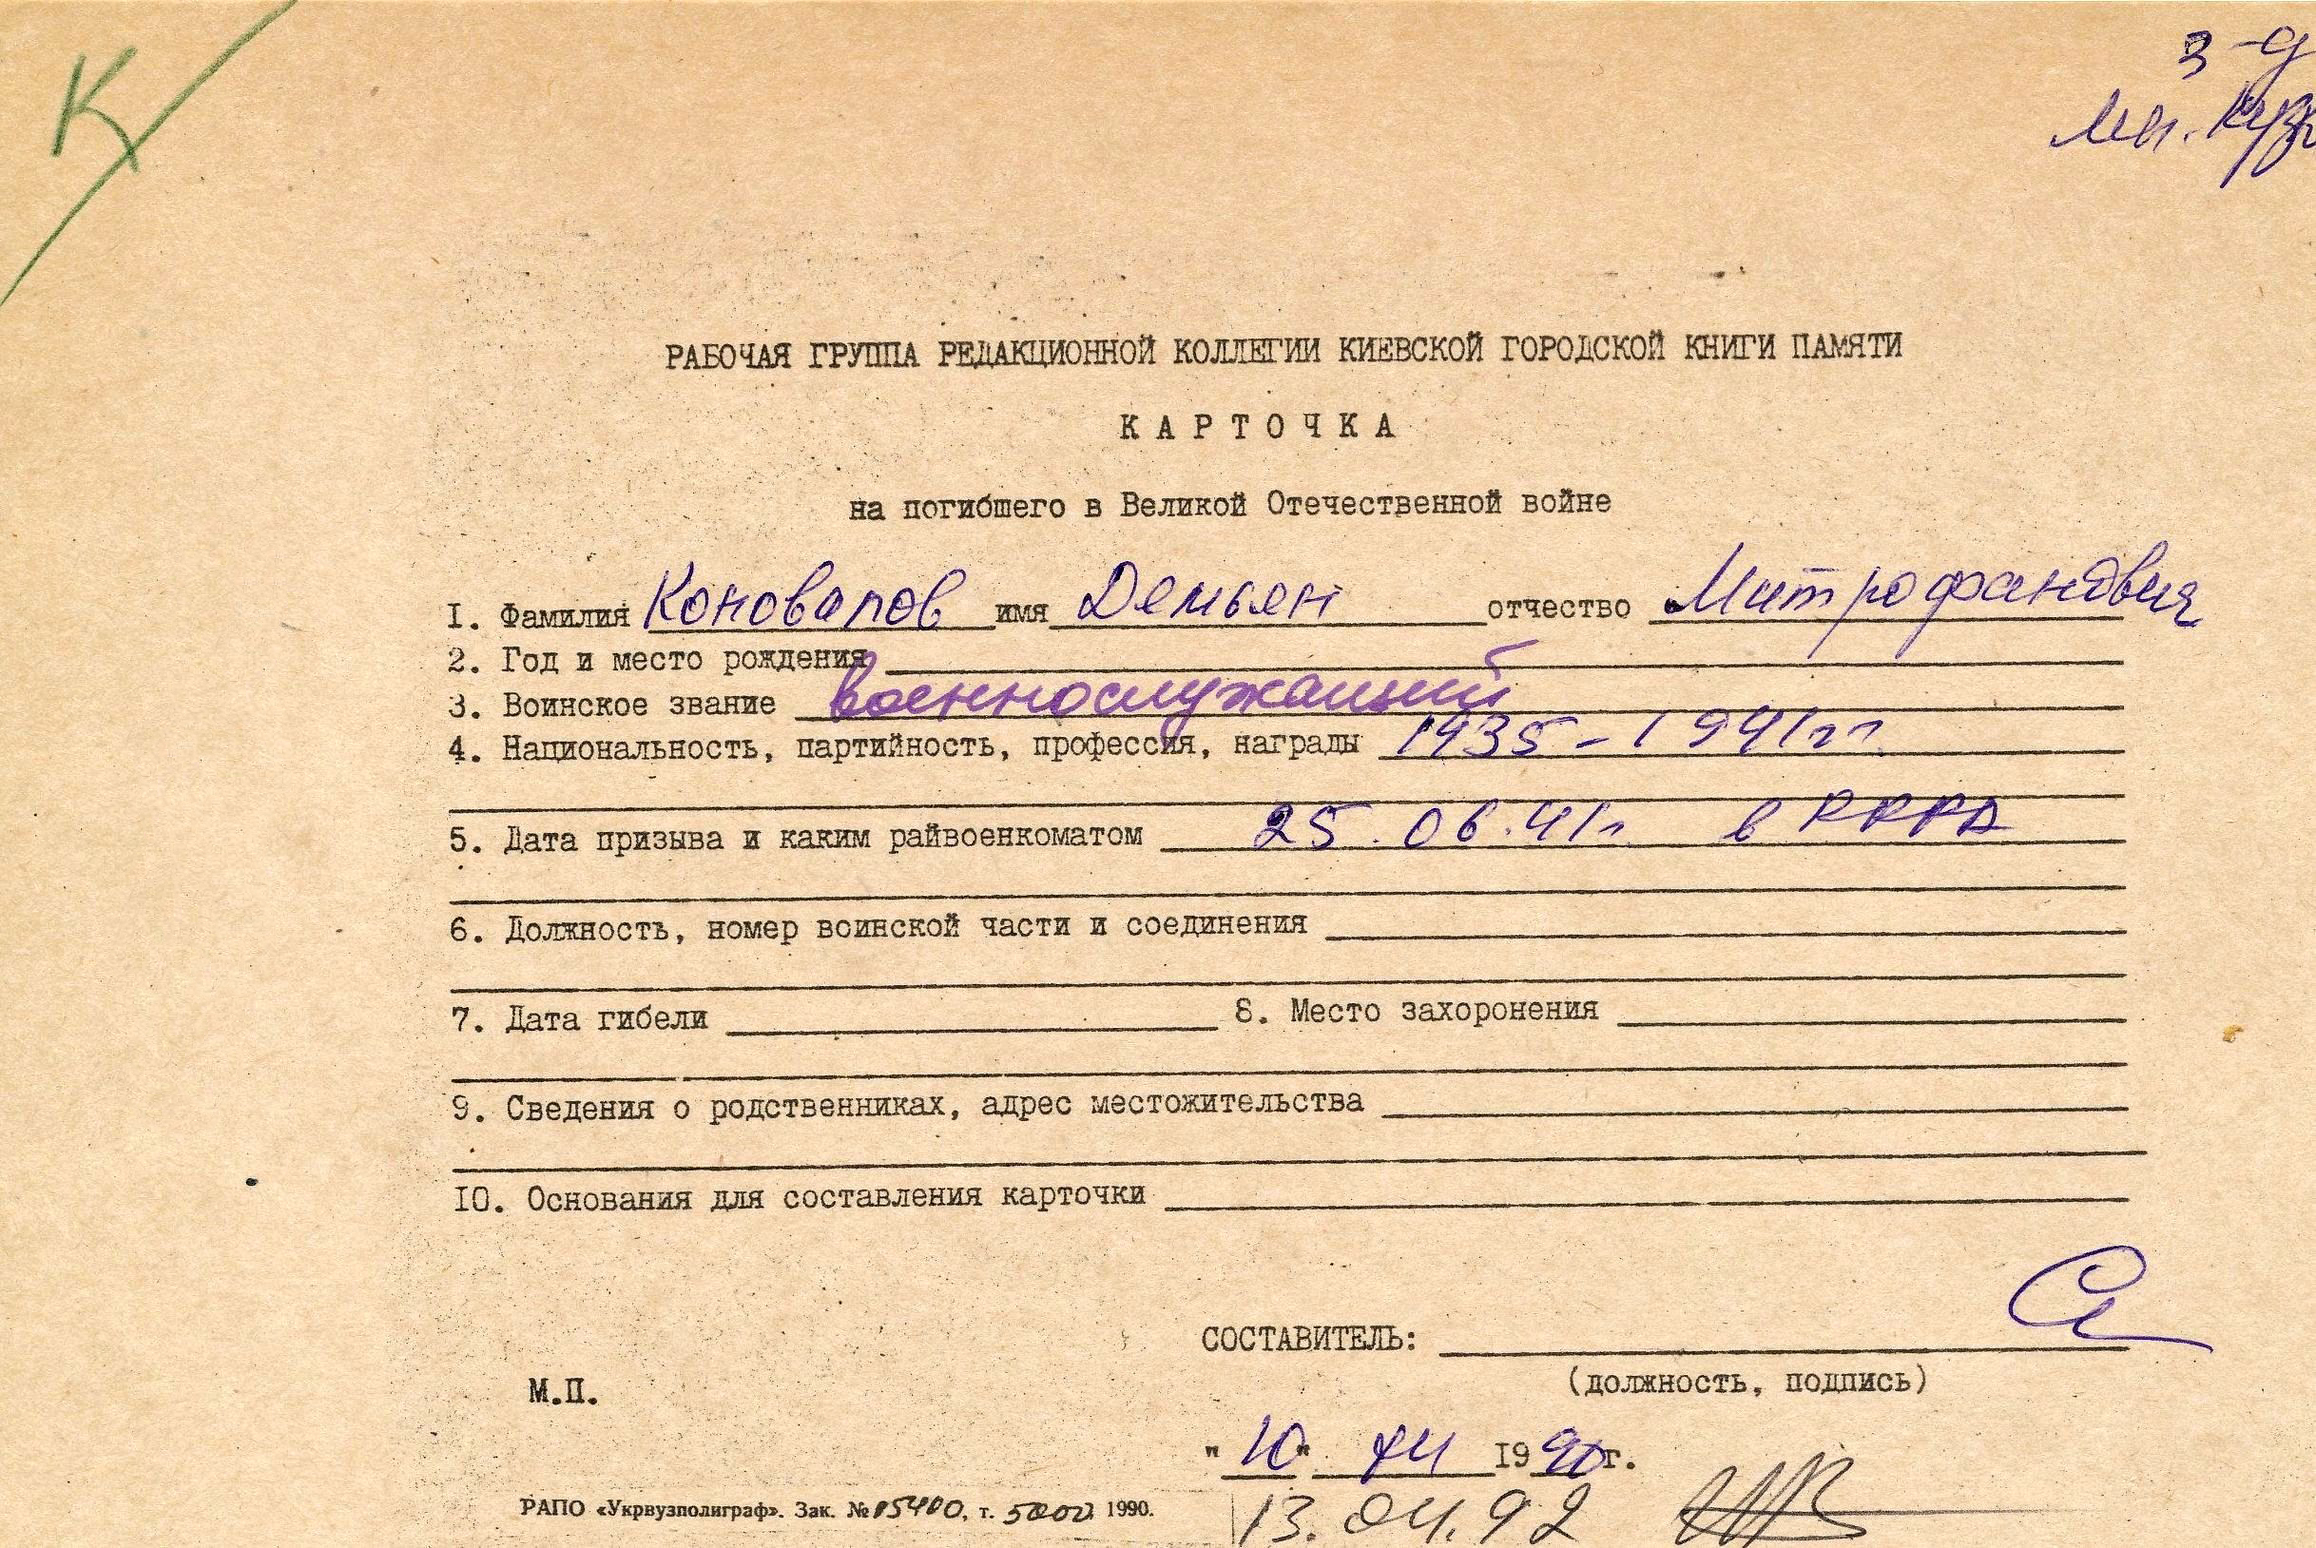 К
з-д
им. Кузн
РАБОЧАЯ ГРУППА РЕДАКЦИОННОЙ КОЛЛЕГИИ КИЕВСКОЙ ГОРОДСКОЙ КНИГИ ПАМЯТИ
КАРТОЧКА
на погибшего в Великой Отечественной войне
I. Фамилия Коновалов имя Демьян отчество Митрофанович
2. Год и место рождения
3. Воинское звание военнослужащий
4. Национальность, партийность, профессия, награды 1935-1941гг.
5. Дата призыва и каким райвоенкоматом 25.06.41г. в РККА
6. Должность, номер воинской части и соединения
7. Дата гибели 8. Место захоронения
9. Сведения о родственниках, адрес местожительства
IO. Основания для составления карточки
СОСТАВИТЕЛЬ:
(должность, подпись)
М.П.
"10" XII 1990г.
РАПО «Укрвузполиграф». Зак. № 05400, т. 5000 1990.
13.04.92